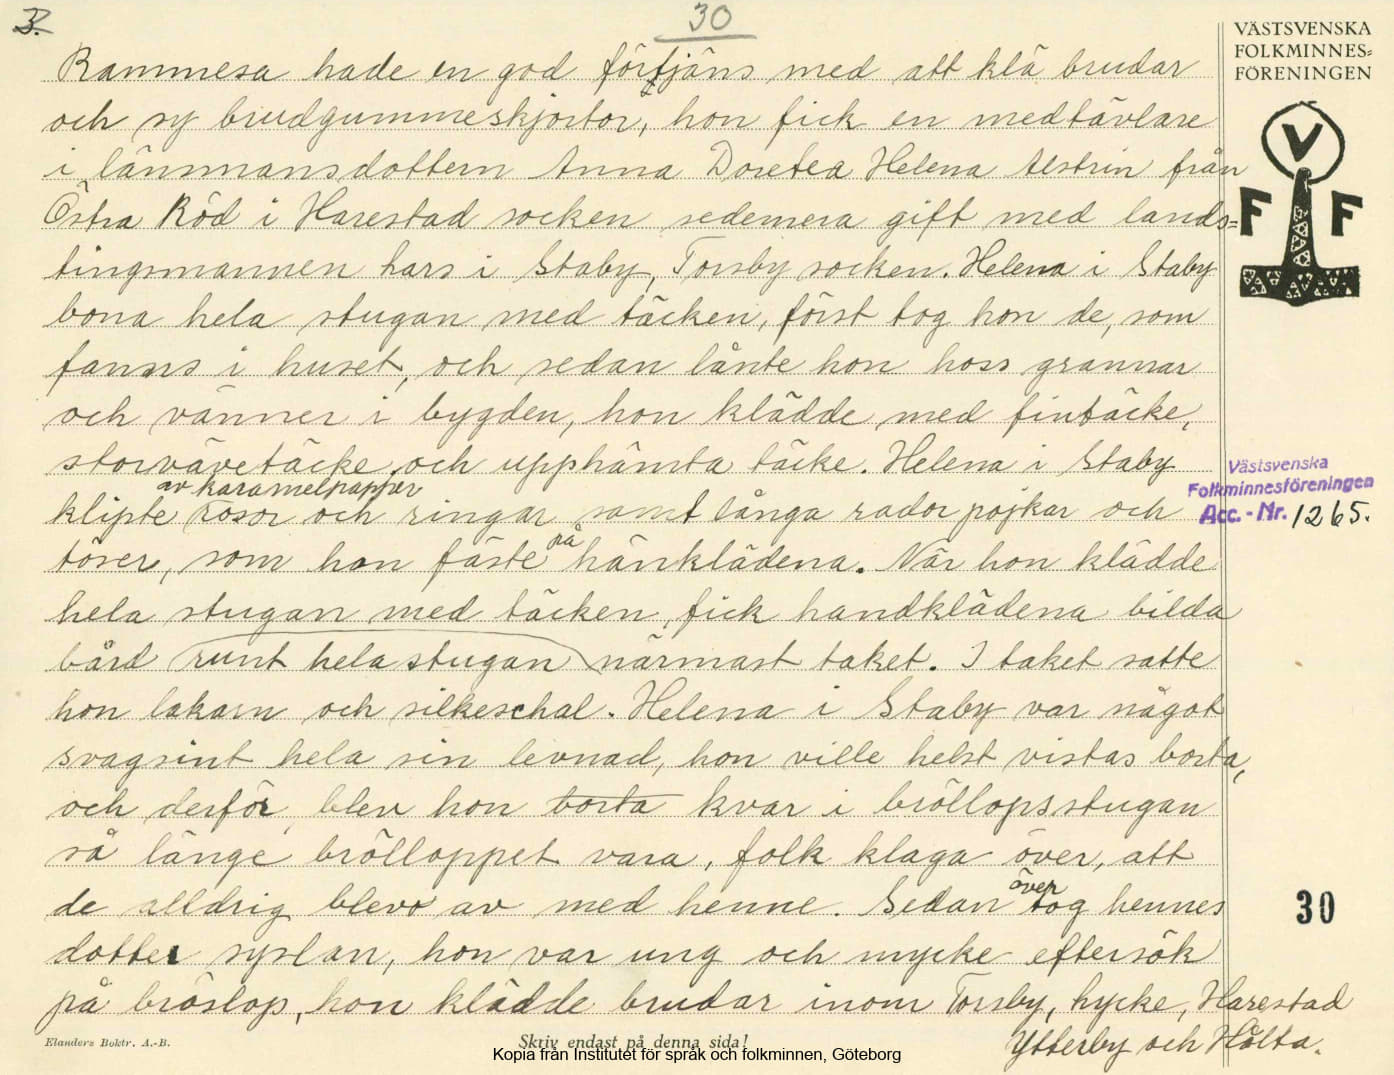 3.
30
VÄSTSVENSKA
FOLKMINNES-
FÖRENINGEN
V
F F
Rammesa hade en god förtjäns med att klä brudar
och sy brudgummeskjortor, hon fick en medtävlare
i länsmansdottern Anna Doretea Helena Alstrin från
Östra Röd i Harestad socken sedemera gift med lands=
tingsmannen Lars i Staby, Torsby socken. Helena i Staby
bona hela stugan med täcken, först tog hon de, som
fanns i huset, och sedan lånte hon hoss grannar
och vänner i bygden, hon klädde med fintäcke,
storvävetäcke och upphämta täcke. Helena i Staby
av karamelpapper
klipte rosor och ringar samt långa rador pojkar och
töser, som hon fäste på hänklädena. När hon klädde
hela stugan med täcken, fick handklädena bilda
bård runt hela stugan närmast taket. I taket satte
hon lakarn och silkeschal. Helena i Staby var något
svagsint hela sin levnad, hon ville helst vistas borta,
och derför, blev hon borta kvar i bröllopsstugan
så länge brölloppet vara, folk klaga över, att
de alldrig blevo av med henne. Sedan övertog hennes
dotter syslan, hon var ung och mycke eftersök
på bröslop, hon klädde brudar inom Torsby, hycke, Harestad
Ytterby och Hålta.
Västsvenska
Folkminnesföreningen
Acc.-Nr. 1265.
30
Elanders Boktr. A.-B.
Skriv endast på denna sida!
Kopia från Institutet för språk och folkminnen, Göteborg